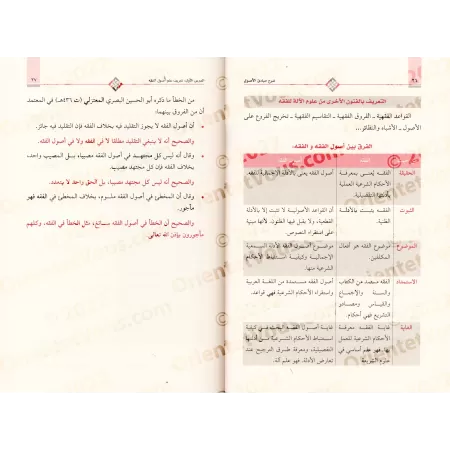 ٢٦
شرح مبادئ الأصول
التعريف بالفنون الأخرى من علوم الآلة للفقه
القواعد الفقهية - الفروق الفقهية - التقاسيم الفقهية - تخريج الفروع على
الأصول - الأشباه والنظائر...
الفرق بين أصول الفقه و الفقه:
الفقه أصول الفقه
الحقيقة الفقه يعنى بمعرفة أصول الفقه يعنى بالأدلة الإجمالية للفقه.
الأحكام الشرعية العملية
بأدلتها التفصيلية.
الثبوت الفقه يثبت بالأدلة أن القواعد الأصولية لا تثبت إلا بالأدلة
الظنية. القطعية، ولا يقبل فيها الظنون. لأنها مبنية
على استقراء النصوص.
الموضوع موضوع الفقه هو أفعال موضوع أصول الفقه الأدلة السمعية
المكلفين. الإجمالية وكيفية استنباط الأحكام
الشرعية منها
الاستمداد الفقه مستمد من الكتاب أصول الفقه مستمدة من اللغة العربية
والسنة والإجماع واستقراء الأحكام الشرعية فهي قواعد.
والقياس ومصادر
التشريع فهي أحكام.
الغاية غاية الفقه معرفة غاية أصول الفقه البحث في كيفية
الأحكام الشرعية للعمل استنباط الأحكام الشرعية من أدلتها
بها فهو علم أساسي في التفصيلية، ومعرفة طرق الترجيح عند
علوم الشريعة تعارض الأدلة. فهو علم آلة.
التعريف الأول: تعريف علم أصول الفقه
٢٧
من الخطأ ما ذكره أبو الحسين البصري المعتزلي (ت ٤٣٦هـ) في المعتمد
أن من الفروق بينهما:
أن أصول الفقه لا يجوز التقليد فيه بخلاف الفقه فإن التقليد فيه جائز.
والصحيح أنه لا ينبغي التقليد مطلقا لا في الفقه ولا في أصوله.
وقال أنه ليس كل مجتهد في أصول الفقه مصيبا، بل المصيب واحد،
بخلاف الفقه فإن كل مجتهد فيه مصيب.
والصحيح أنه ليس كل مجتهد مصيب، بل الحق واحد لا يتعدد.
وقال أن المخطئ في أصول الفقه ملوم، بخلاف المخطئ في الفقه فهو
مأجور.
والصحيح أن الخطأ في أصول الفقه سائغ، مثل الخطأ في الفقه، وكلهم
مأجورون بإذن الله تعالى.
Orientetvous.com